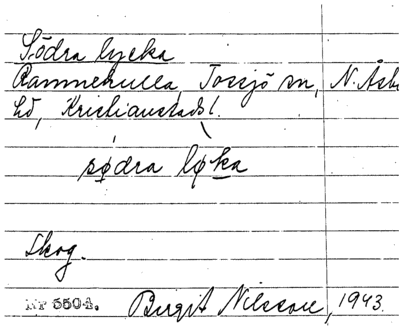 Södra lycka
Rammekulla, Tossjö sn, N. Åsbo
hd, Kristianstads l.
södra løka
Skog.
Nr 5504. Birgit Nilsson, 1943.